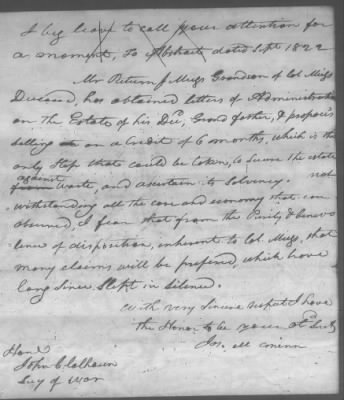 I beg leave to call your attention for
a moment, To Abstracts dated Sept 1822
Mr Return J Meigs Grandson of Col. Meigs
Deceased, has obtained letters of Administration
on The Estate of his Dec. Grand father, & proposes
selling on a Credit of 6 months, which is the
only Step that could be taken, to Secure the estate
against
from waste, and ascertain its Solvency. not
withstanding all the care and economy that can
observed, I fear that from the Purity & benevo
lence of disposition, inherent to Col. Meigs, that
many claims will be prefered which have
long Since Slept in Silence.
with very Sincere respect I have
the Honor to be your Obt Sert
Jos. McMinn
Honl
John C Calhoun
Secy of War